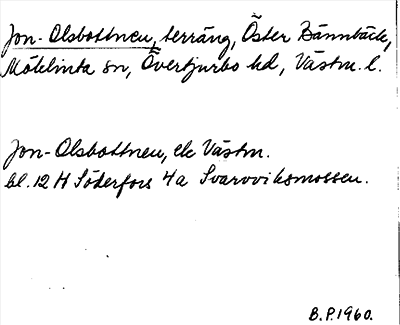 Jon-Olsbottnen, terräng, Öster Bännbäck,
Möklinta sn, Övertjurbo hd, Västm. l.
Jon-Olsbottnen, ek Västm.
bl. 12 H Söderfors 4a Svarvviksmossen.
B.P. 1960.